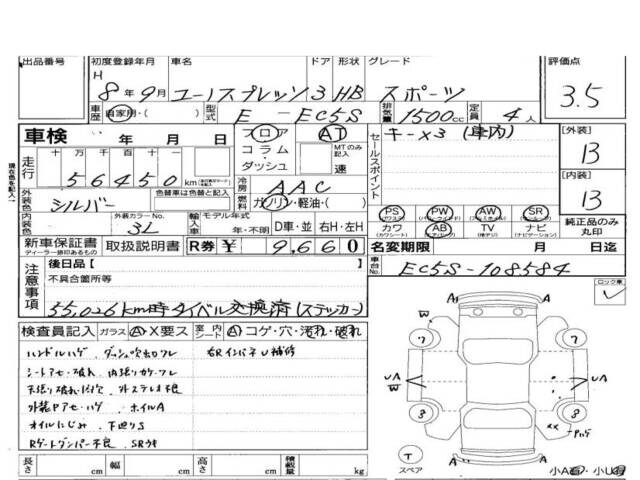 出品番号 初度登録年月 車名 ドア 形状 グレード 評価点
H 8年9月 ユーノスプレッソ 3 HB スポーツ 3.5
車歴 自家用・( ) 型式 E - EC5S 排気量 1500cc 定員 4人
車検 年 月 日 フロア AT
走行 十万千百十一 コラム・ダッシュ MTのみ記入 速
56450 km
セールスポイント キー×3 (車内)
[外装] B
[内装] B
外装色 シルバー 色替車は色替と記入
冷房 AAC
ガソリン・軽油・( )
内装色 外装カラーNo. 3L 輸入車 モデル年式 年・不明 D車・並 右H・左H
PS PW AW SR
カワ AB TV ナビ
純正品のみ丸印
新車保証書 取扱説明書 R券 ¥ 9,660
ディーラー捺印あるもの
名変期限 月 日迄
車台No. EC5S-108584
現在色を記入
注意事項
後日品[ ]
不具合箇所等
55,026km時タイベル交換済(ステッカー)
ロック車
検査員記入 ガラス A×要ス 室内シート A コゲ・穴・汚れ・破れ
ハンドルハゲ ダッシュ吹出カケワレ 右Rインパネ U補修
シートアセ・破れ 内張りカケワレ
天張り破れ 外ステレオ不良
外装Pアセ・ハゲ ホイルA
オイルにじみ 下廻りS
Rゲートダンパー不良 SRウキ
長さ cm 幅 cm 高さ cm 積載量 kg
A A
W
7 7
UA W UA
8 8
Pハゲ
T スペア
A A
小A 小U